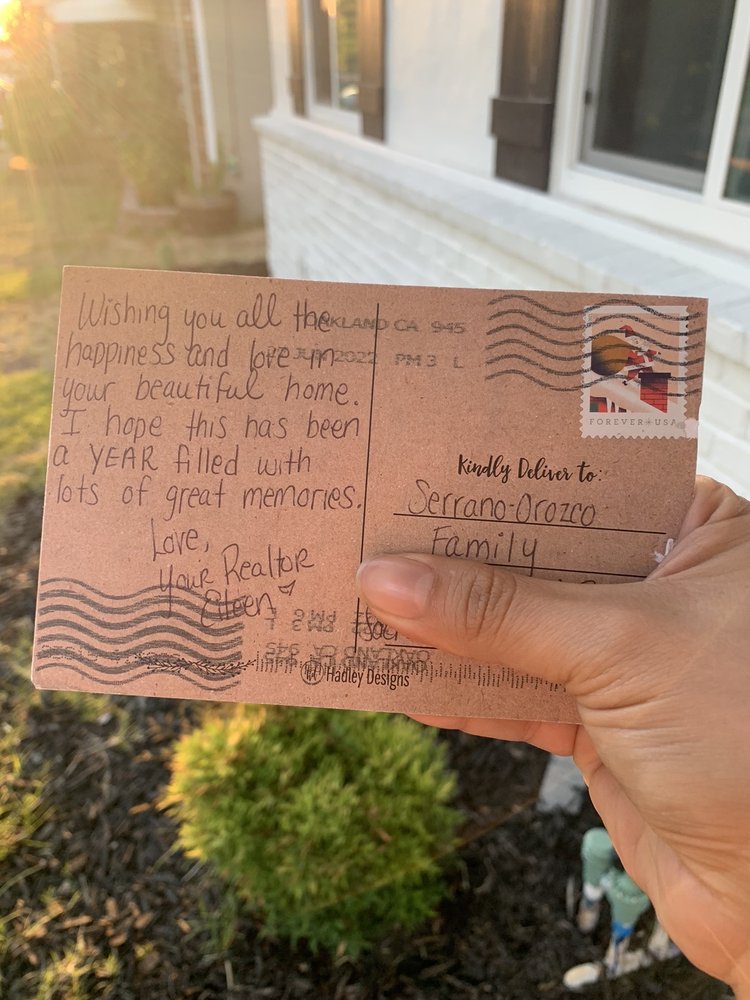 Wishing you all the
happiness and love in
your beautiful home.
I hope this has been
a YEAR filled with
lots of great memories.
Love,
Your Realtor
Eileen
OAKLAND CA 945
JUN 2022 PM 3 L
FOREVER USA
Kindly Deliver to:
Serrano-Orozco
Family
PM 3 L
OAKLAND CA 945
Hadley Designs